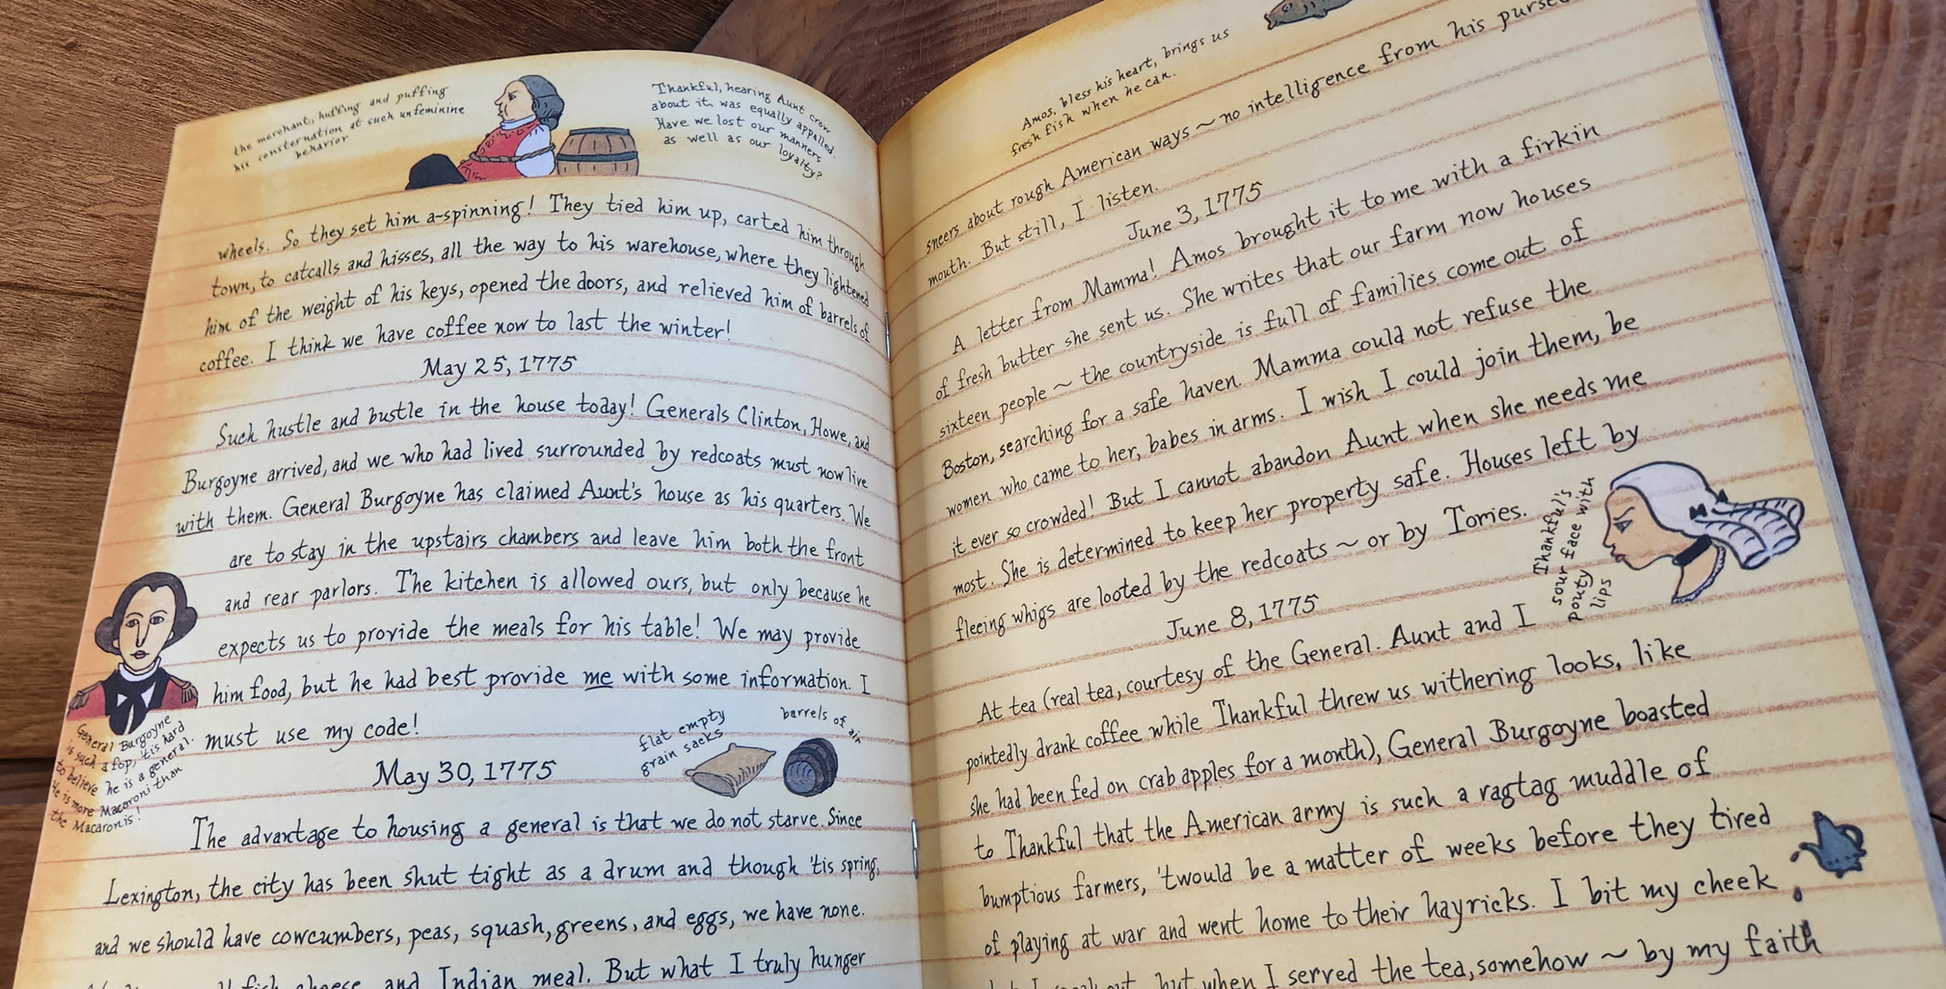 the merchant, huffing and puffing
his consternation at such unfeminine
behavior
Thankful, hearing Aunt crow
about it, was equally appalled.
Have we lost our manners
as well as our loyalty?
wheels. So they set him a-spinning! They tied him up, carted him through
town, to catcalls and hisses, all the way to his warehouse, where they lightened
him of the weight of his keys, opened the doors, and relieved him of barrels of
coffee. I think we have coffee now to last the winter!
May 25, 1775
Such hustle and bustle in the house today! Generals Clinton, Howe, and
Burgoyne arrived, and we who had lived surrounded by redcoats must now live
with them. General Burgoyne has claimed Aunt's house as his quarters. We
are to stay in the upstairs chambers and leave him both the front
and rear parlors. The kitchen is allowed ours, but only because he
expects us to provide the meals for his table! We may provide
him food, but he had best provide me with some information. I
must use my code!
General Burgoyne
is such a fop, 'tis hard
to believe he is a general.
He is more Macaroni than
the Macaronis!
May 30, 1775
flat empty
grain sacks
barrels of air
The advantage to housing a general is that we do not starve. Since
Lexington, the city has been shut tight as a drum and though 'tis spring,
and we should have cowcumbers, peas, squash, greens, and eggs, we have none.
fish, cheese, and Indian meal. But what I truly hunger
Amos, bless his heart, brings us
fresh fish when he can.
sneers about rough American ways ~ no intelligence from his pursed
mouth. But still, I listen.
June 3, 1775
A letter from Mamma! Amos brought it to me with a firkin
of fresh butter she sent us. She writes that our farm now houses
sixteen people ~ the countryside is full of families come out of
Boston, searching for a safe haven. Mamma could not refuse the
women who came to her, babes in arms. I wish I could join them, be
it ever so crowded! But I cannot abandon Aunt when she needs me
most. She is determined to keep her property safe. Houses left by
fleeing whigs are looted by the redcoats ~ or by Tories.
Thankful's
sour face with
pouty
lips
June 8, 1775
At tea (real tea, courtesy of the General. Aunt and I
pointedly drank coffee while Thankful threw us withering looks, like
she had been fed on crab apples for a month), General Burgoyne boasted
to Thankful that the American army is such a ragtag muddle of
bumptious farmers, 'twould be a matter of weeks before they tired
of playing at war and went home to their hayricks. I bit my cheek
but when I served the tea, somehow ~ by my faith